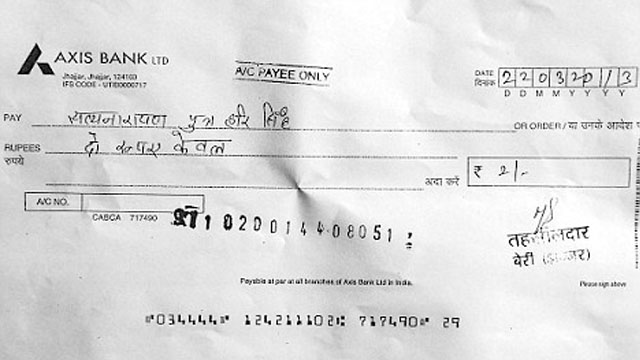 AXIS BANK LTD
Jhajjar, Jhajjar, 124103
IFS CODE - UTIB0000717
A/C PAYEE ONLY
DATE दिनांक 22032013
D D M M Y Y Y Y
PAY सत्यनारायण पुत्र हरि सिंह OR ORDER / या उनके आदेश प
RUPEES रुपये दो रुपए केवल
अदा करें ₹ 2/-
A/C NO.
CABCA 717490
1020014408051
तहसीलदार
बेरी (झज्जर)
Payable at par at all branches of Axis Bank Ltd in India.
Please sign above
"034444" 124211102: 717490" 29